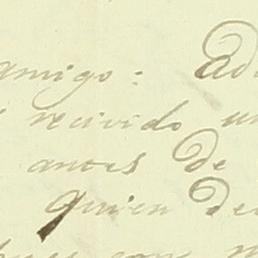 amigo: Ad
recivido un
antes de
Quien de